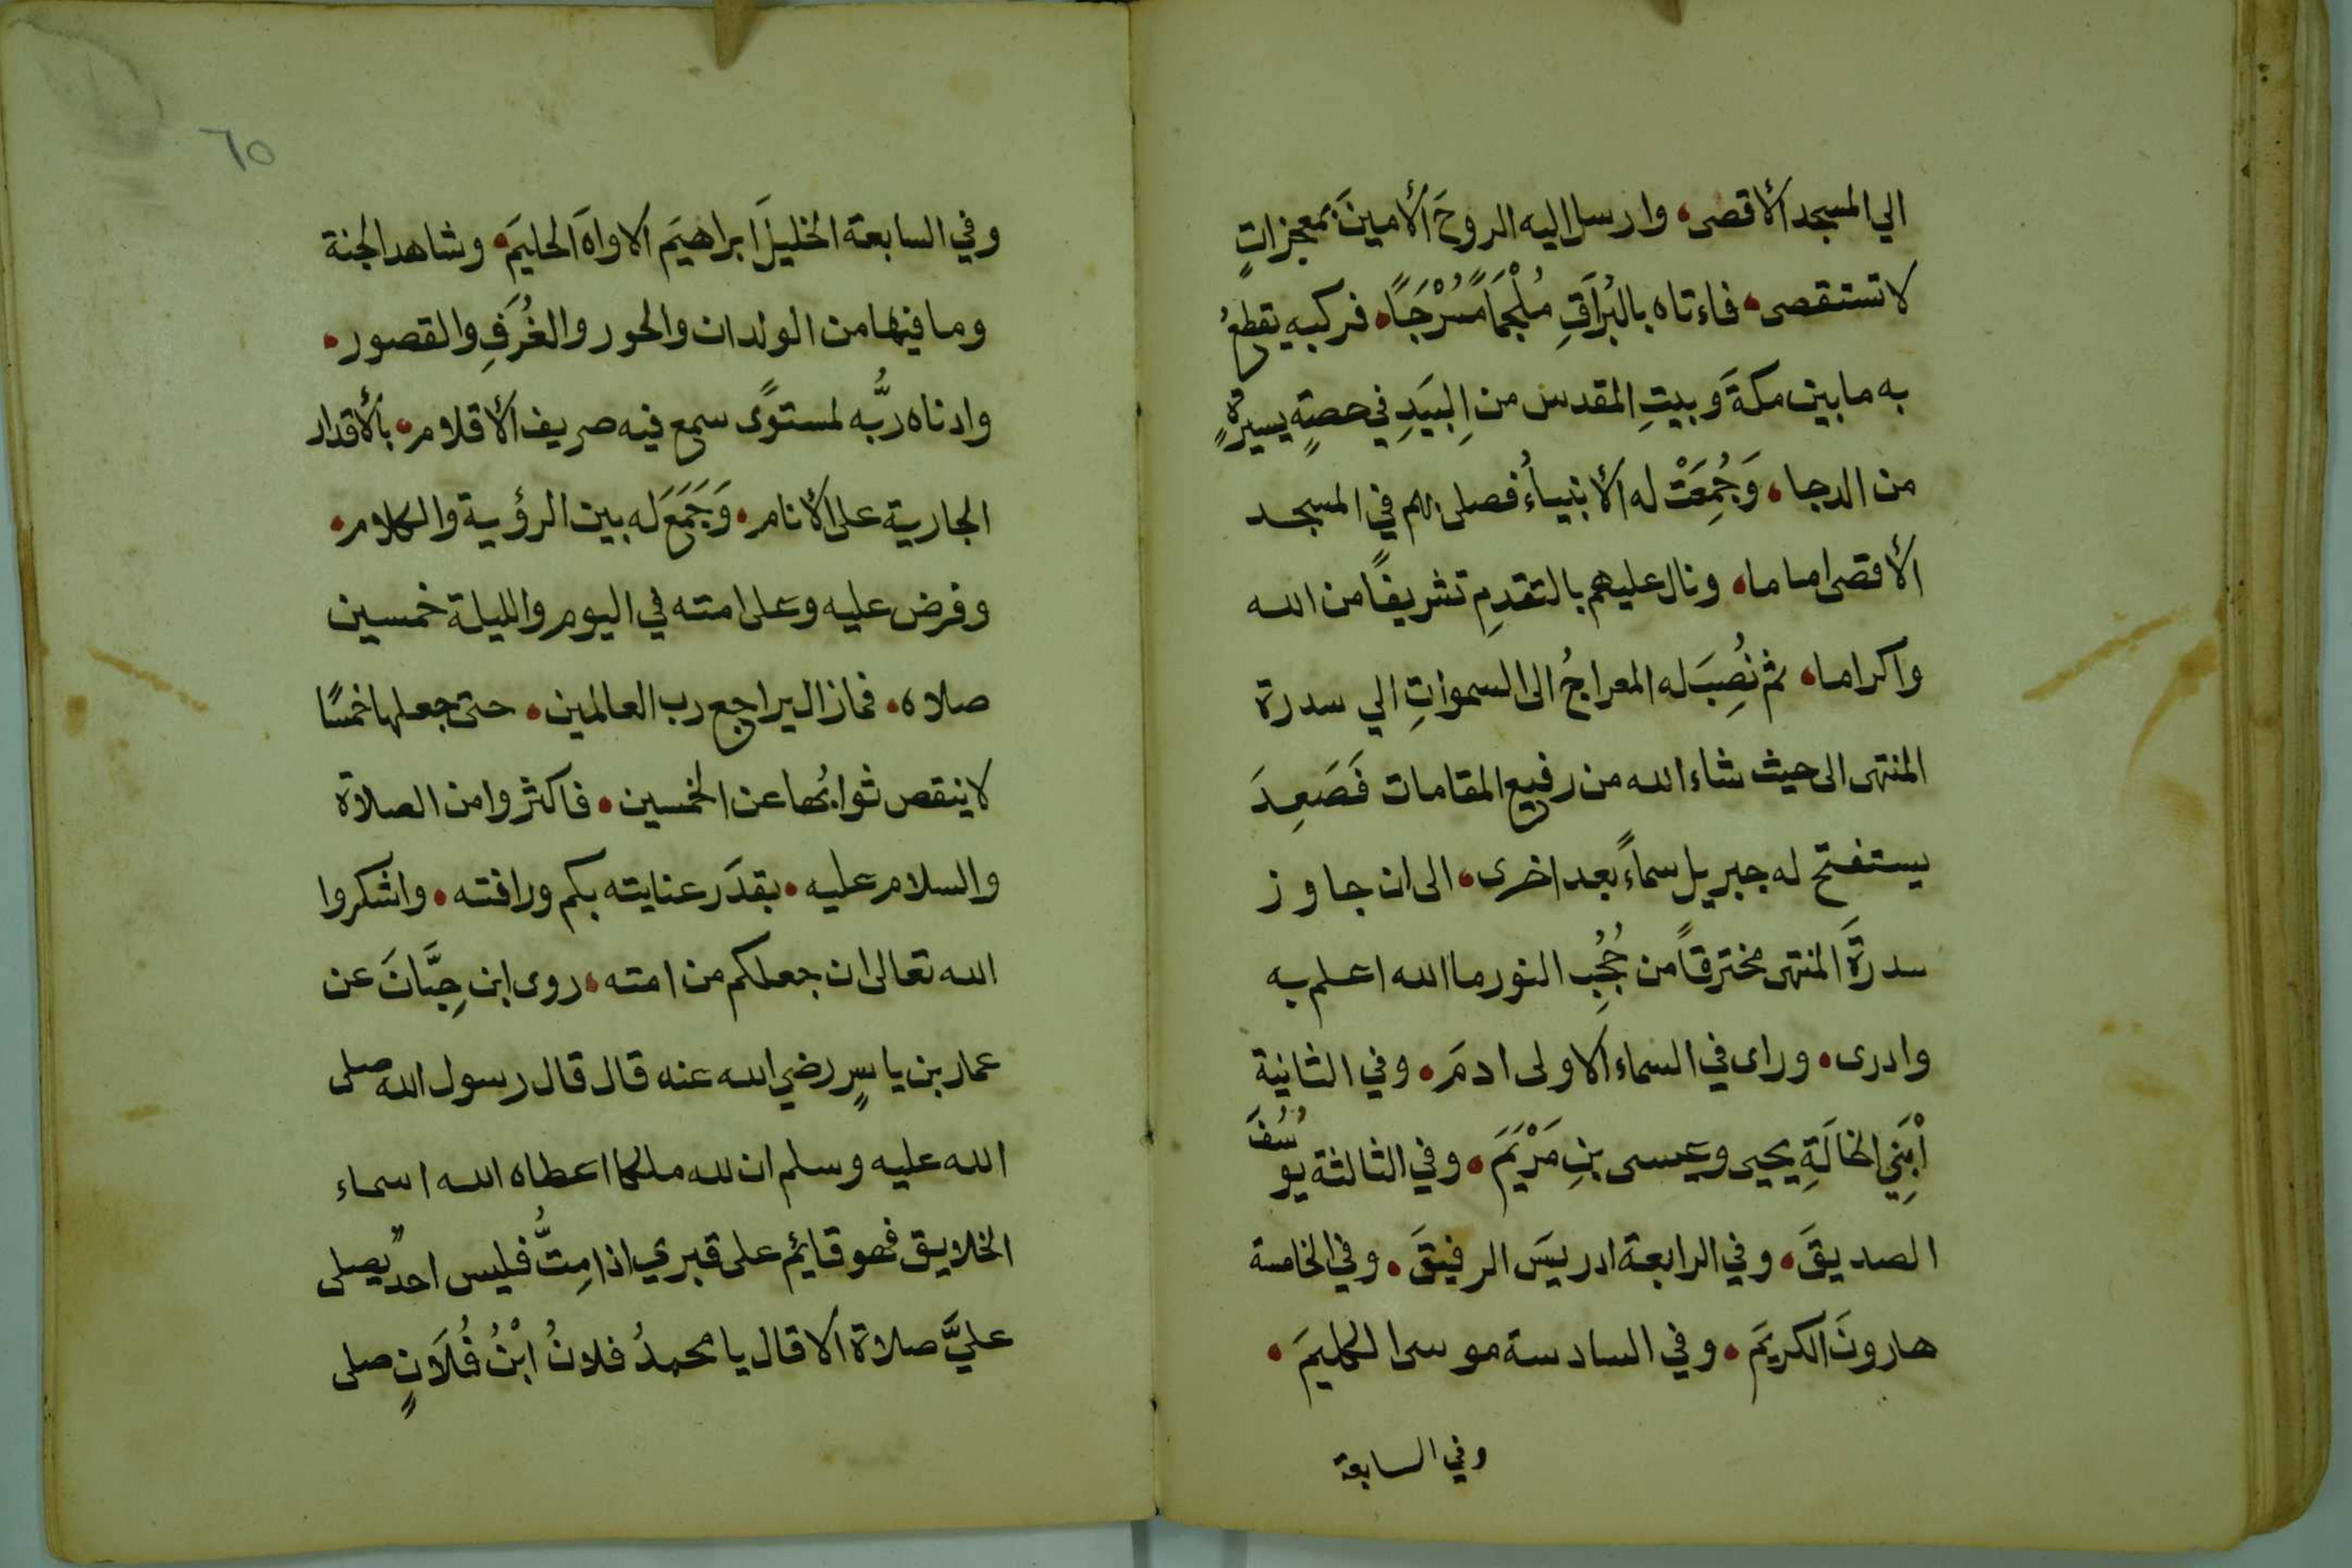 الي المسجد الأقصى، وارسل اليه الروحَ الأمينَ بمعجزاتٍ
لا تستقصى، فاءتاه بالبُرَاقِ مُلْجَمًا مُسْرَجًا، فركبه يقطعُ
به ما بين مكةَ وبيتِ المقدس من البِيَدِ في حصةٍ يسيرةٍ
من الدجا، وَجُمِعَتْ له الأنبياءُ فصلى بهم في المسجد
الأقصى اماما، ونال عليهم بالتقدمِ تشريفًا من الله
واكراما، ثم نُصِبَ له المعراجُ الى السمواتِ الي سدرة
المنتهى الى حيث شاء الله من رفيع المقامات فَصَعِدَ
يستفتح له جبريل سماءً بعد اخرى، الى ان جاوز
سدرةَ المنتهى مخترقًا من حُجُبِ النور ما الله اعلم به
وادرى، وراى في السماء الاولى ادمَ، وفي الثانية
ابْنَيِ الخالَةِ يحيى وعيسى بنِ مَرْيَمَ، وفي الثالثة يوسُفَ
الصديقَ، وفي الرابعة ادريسَ الرفيقَ، وفي الخامسة
هارونَ الكريمَ، وفي السادسة موسى الكليمَ،
وفي السابعة
٦٥
وفي السابعة الخليلَ ابراهيمَ الاواهَ الحليمَ، وشاهد الجنة
وما فيها من الولدان والحور والغُرَفِ والقصور،
وادناه ربُّه لمستوًى سمع فيه صريف الأقلام، بالأقدار
الجارية على الأنام، وَجَمَعَ لَه بين الرؤية والكلام،
وفرض عليه وعلى امته في اليوم والليلة خمسين
صلاه، فمازال يراجع رب العالمين، حتى جعلها خمسًا
لا ينقص ثوابُها عن الخمسين، فاكثروا من الصلاة
والسلام عليه، بقدَر عنايته بكم ورافته، واشكروا
الله تعالى ان جعلكم من امته، روى ابن حِبَّانَ عن
عمار بن ياسٍر رضي الله عنه قال قال رسول الله صلى
الله عليه وسلم ان لله ملكا اعطاه الله اسماء
الخلايق فهو قايم على قبري اذا مِتُّ فليس احدٌ يصلى
عليَّ صلاة الا قال يا محمدُ فلانُ ابْنُ فُلَانٍ صلى